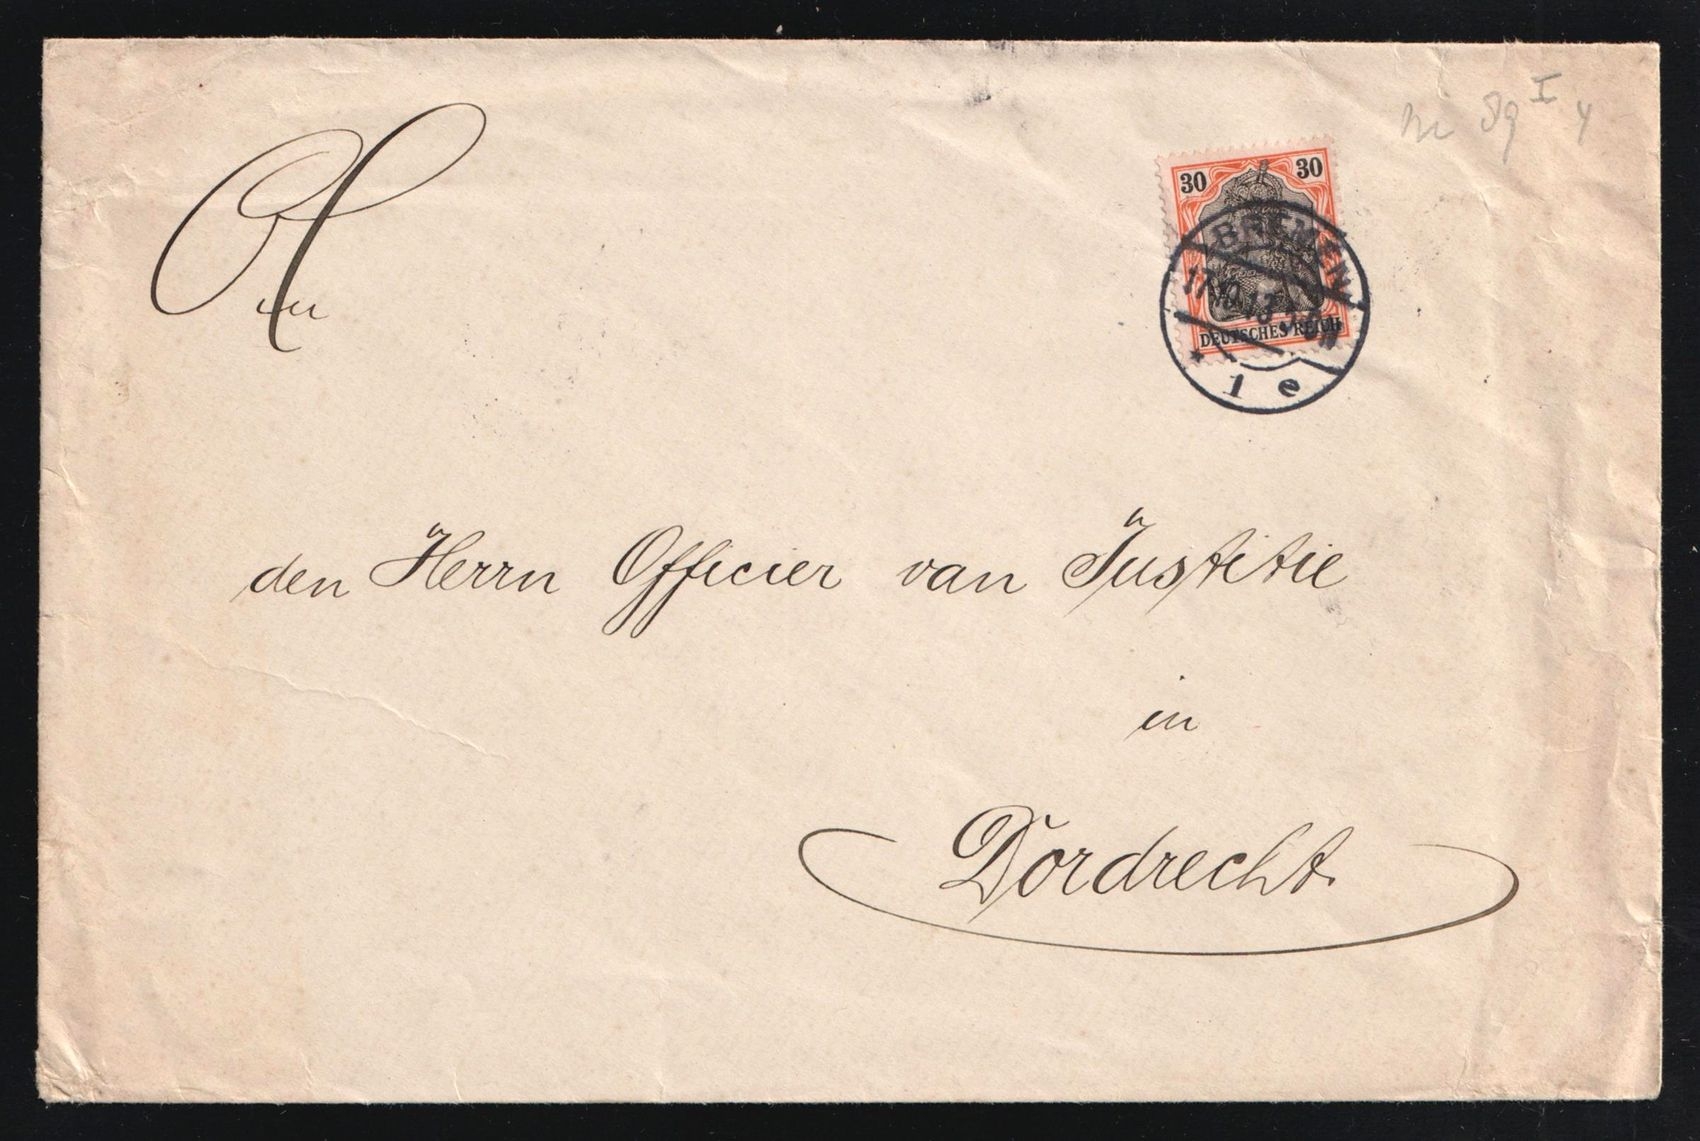 An
den Herrn Officier van Justitie
in
Dordrecht.
30 30
DEUTSCHES REICH
BREMEN
17.10.13
* 1 e
89 I y